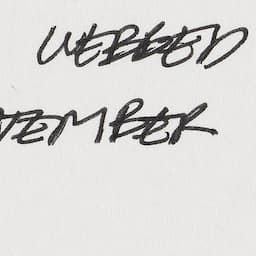 WEBBED
TEMBER